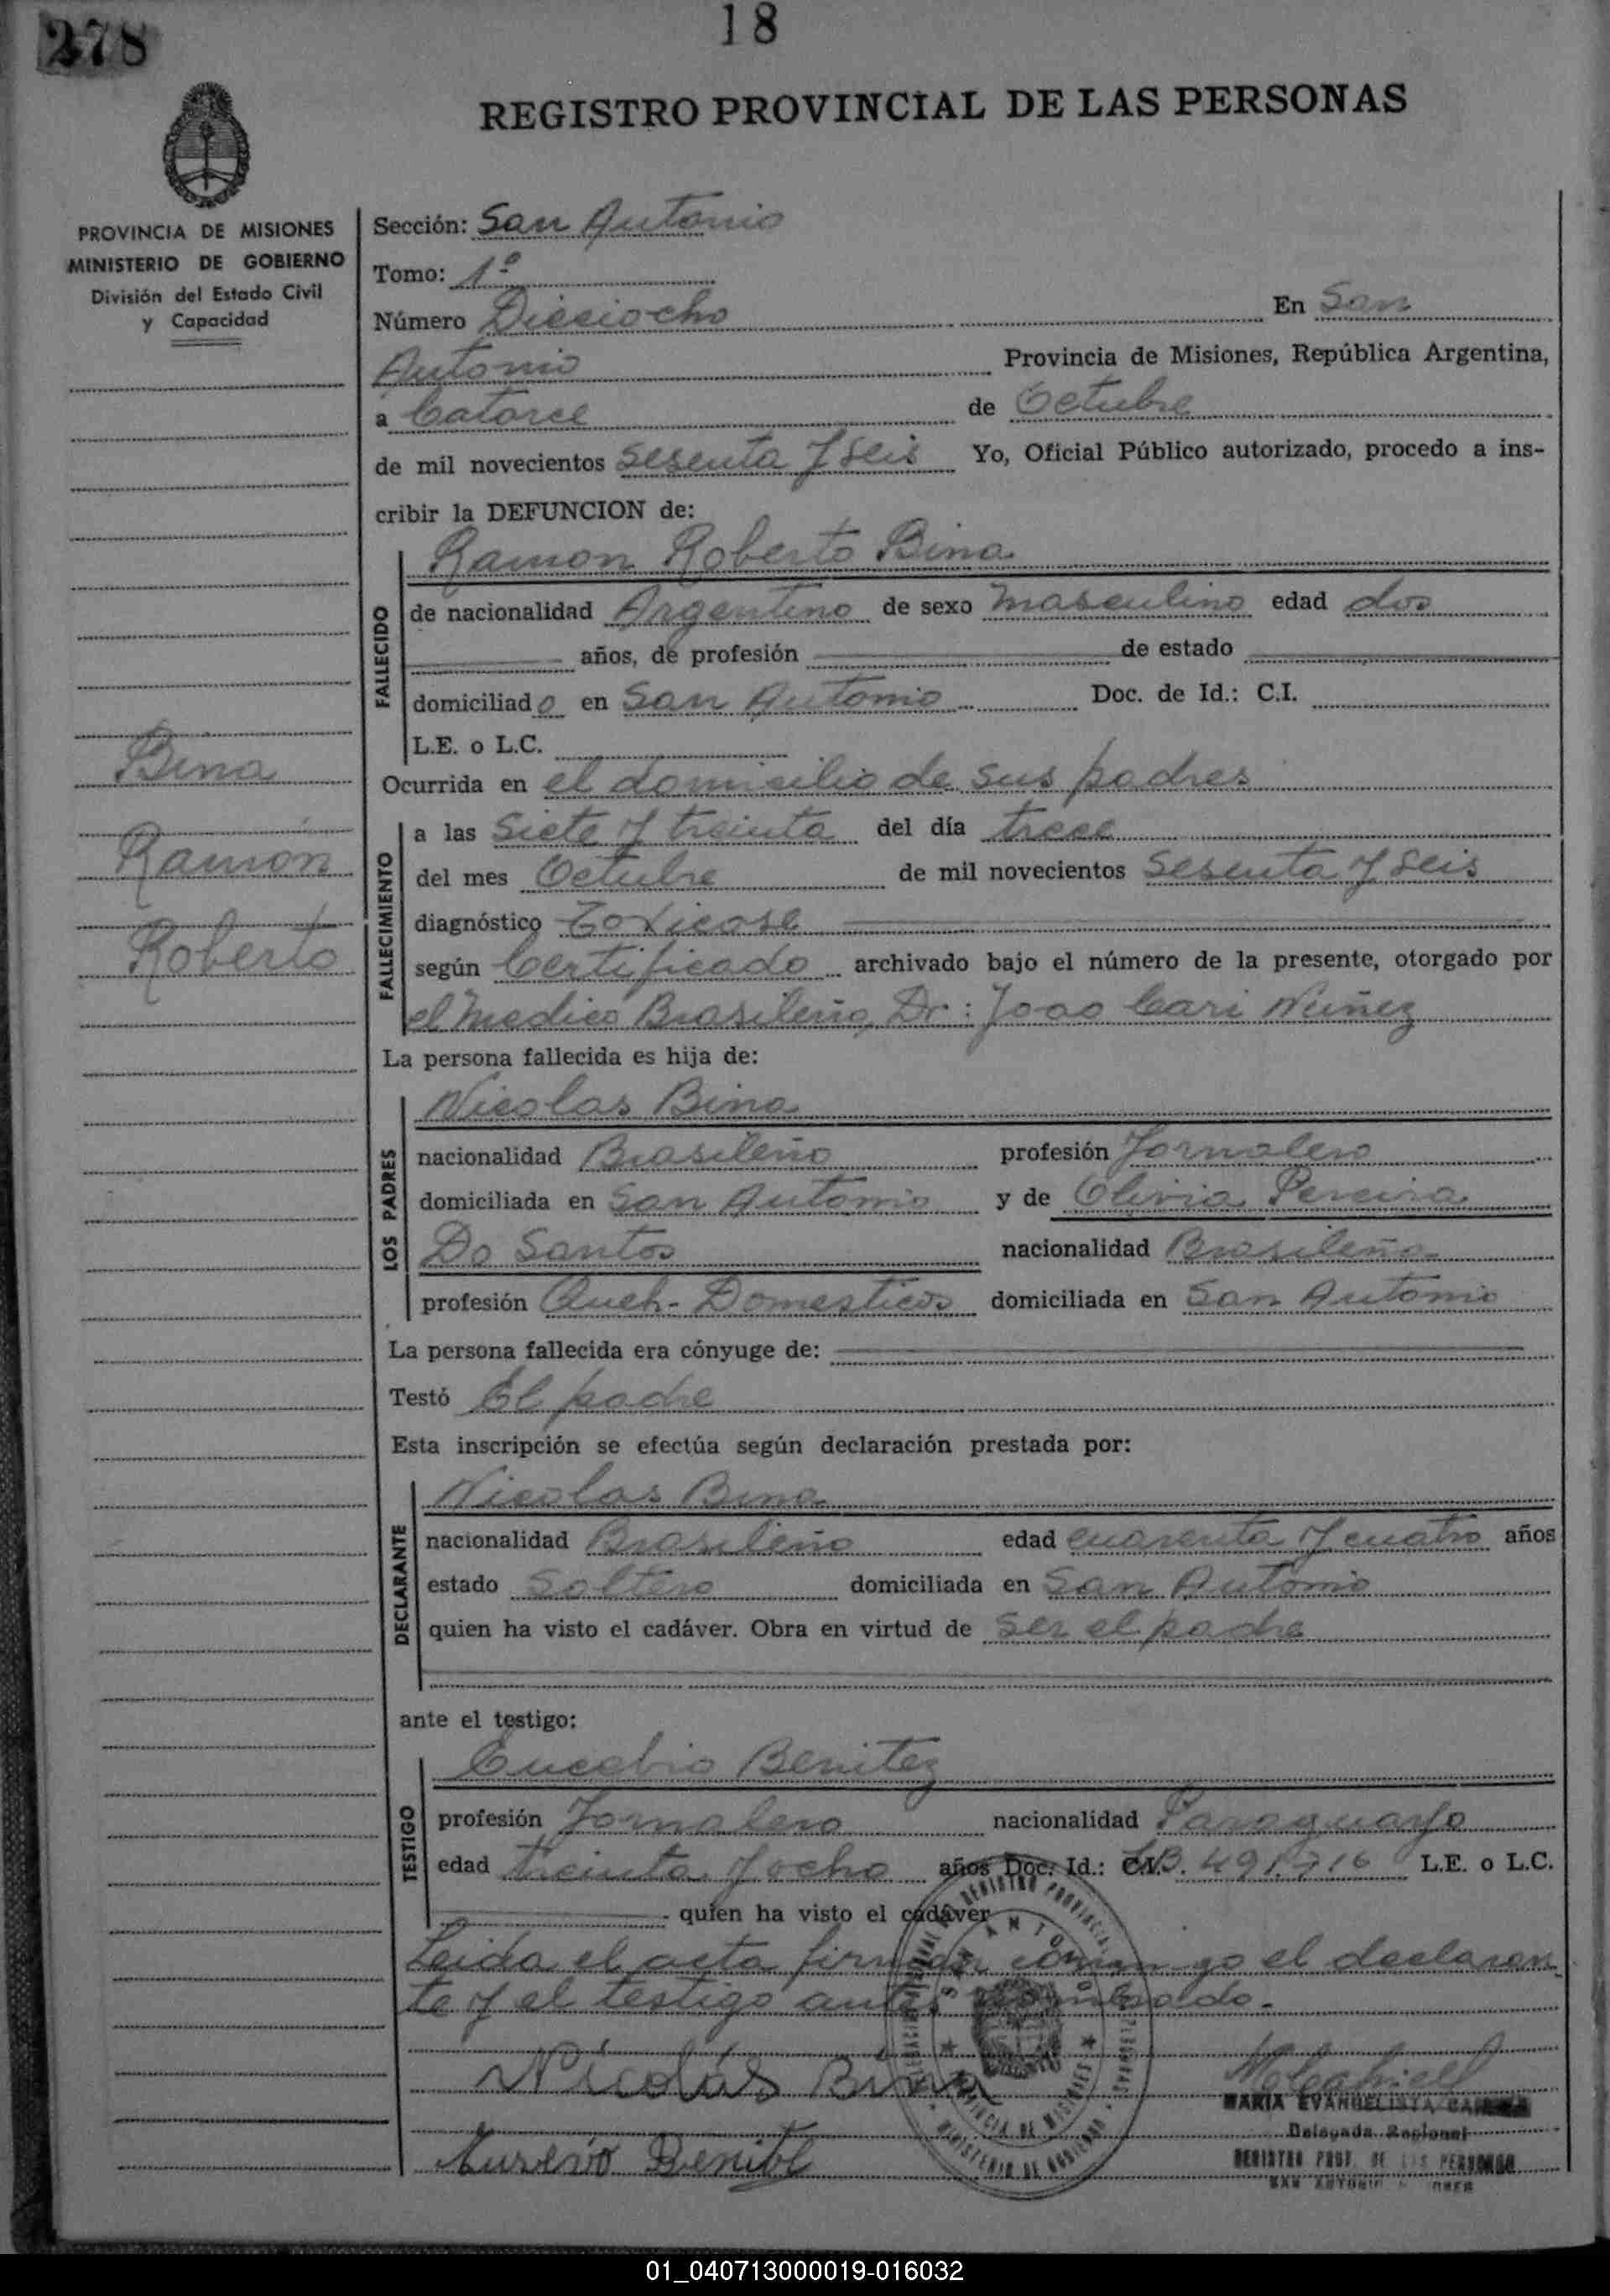 278
18
REGISTRO PROVINCIAL DE LAS PERSONAS
PROVINCIA DE MISIONES
MINISTERIO DE GOBIERNO
División del Estado Civil
y Capacidad
Sección: San Antonio
Tomo: 1º
Número Diesiocho En San
Antonio Provincia de Misiones, República Argentina,
a Catorce de Octubre
de mil novecientos sesenta y seis Yo, Oficial Público autorizado, procedo a ins-
cribir la DEFUNCION de:
FALLECIDO
Ramon Roberto Bina
de nacionalidad Argentino de sexo masculino edad dos
años, de profesión de estado
domiciliado en San Antonio Doc. de Id.: C.I.
L.E. o L.C.
Bina
Ramón
Roberto
Ocurrida en el domicilio de sus padres
FALLECIMIENTO
a las siete y treinta del día trece
del mes Octubre de mil novecientos sesenta y seis
diagnóstico Toxicose
según Certificado archivado bajo el número de la presente, otorgado por
el medico Brasileño, Dr: Joao Cari Nuñez
La persona fallecida es hija de:
LOS PADRES
Nicolas Bina
nacionalidad Brasileño profesión Jornalero
domiciliada en San Antonio y de Olivia Pereira
Do Santos nacionalidad Brasileña
profesión Queh- Domesticos domiciliada en San Antonio
La persona fallecida era cónyuge de:
Testó El padre
Esta inscripción se efectúa según declaración prestada por:
DECLARANTE
Nicolas Bina
nacionalidad Brasileño edad cuarenta y cuatro años
estado Soltero domiciliada en San Antonio
quien ha visto el cadáver. Obra en virtud de ser el padre
ante el testigo:
TESTIGO
Eucebio Benitez
profesión Jornalero nacionalidad Paraguayo
edad treinta y ocho años Doc. Id.: C.I. L.E. o L.C.
quien ha visto el cadáver
Leida el acta firman conmigo el declaran
te y el testigo antes nombrado.-
Nicolás Bina
Benite
MARIA EVANGELISTA
Delegada Regional
REGISTRO PROV. DE LAS PERSONAS
SAN ANTONIO
01_040713000019-016032